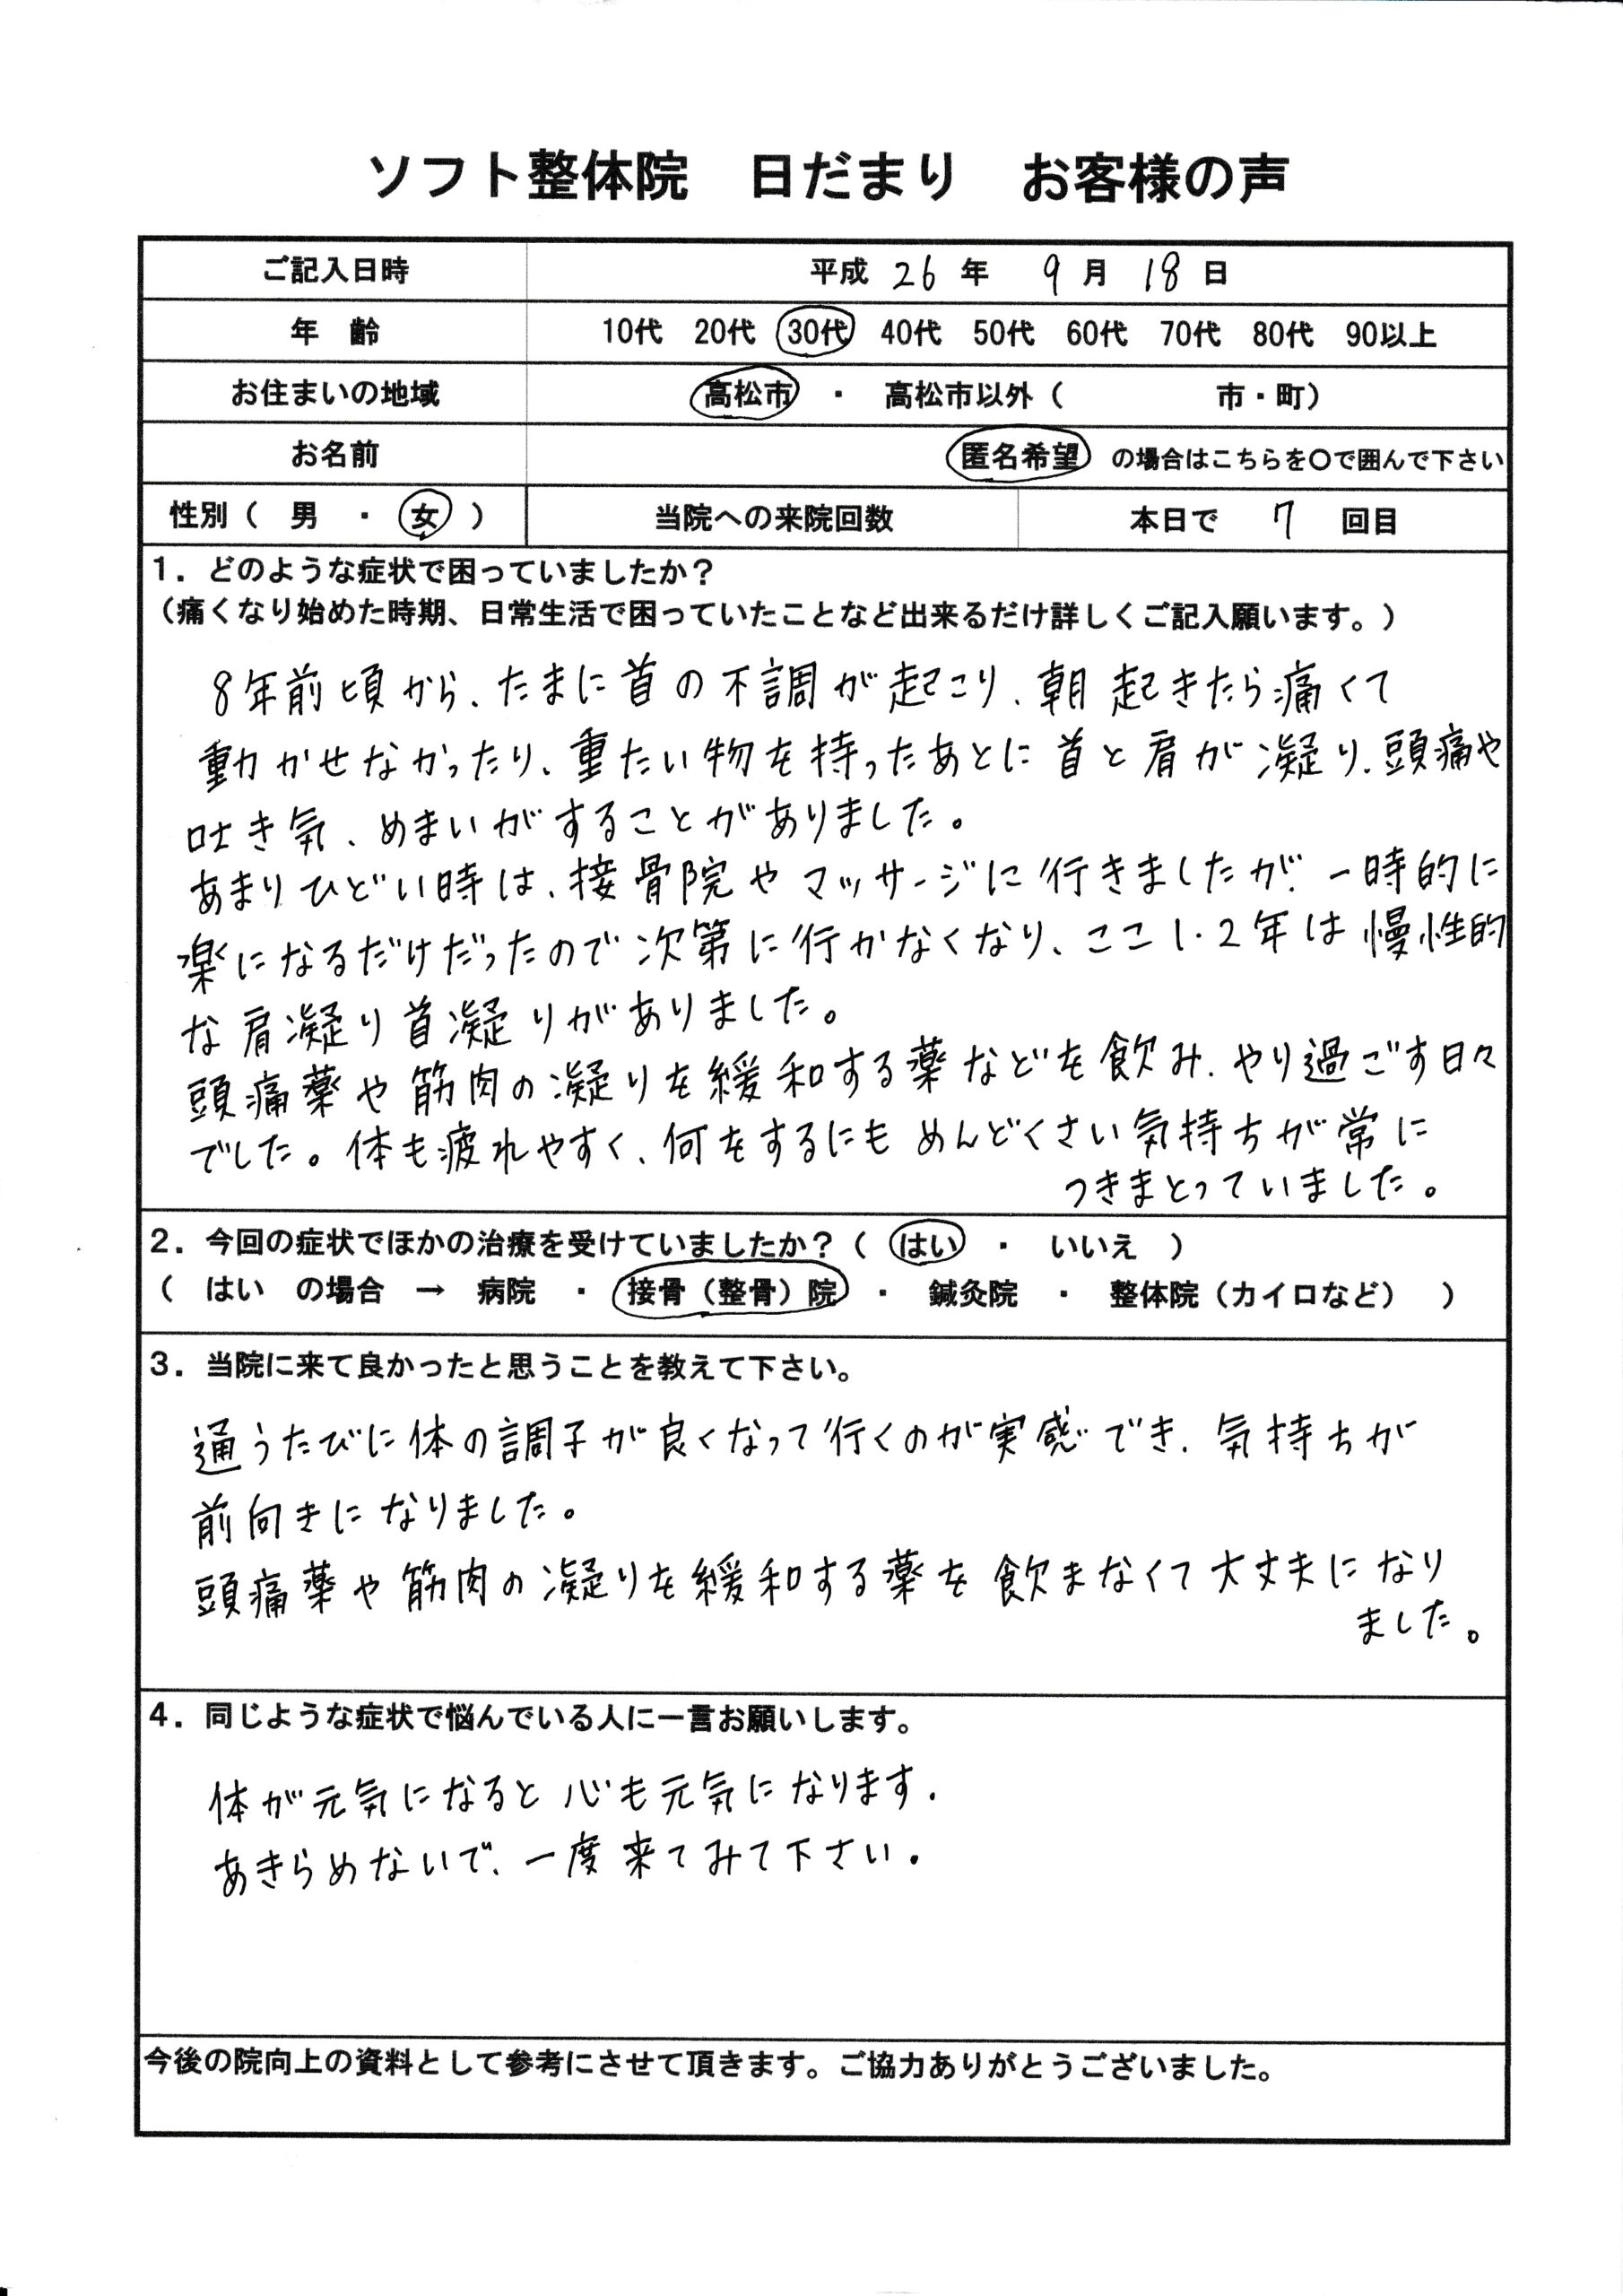 ソフト整体院　日だまり　お客様の声
ご記入日時　平成 26 年 9 月 18 日
年　齢　10代　20代　30代　40代　50代　60代　70代　80代　90以上
お住まいの地域　高松市　・　高松市以外（　　　　　市・町）
お名前　匿名希望　の場合はこちらを〇で囲んで下さい
性別（　男　・　女　）　当院への来院回数　本日で　7　回目
1．どのような症状で困っていましたか？
（痛くなり始めた時期、日常生活で困っていたことなど出来るだけ詳しくご記入願います。）
8年前頃から、たまに首の不調が起こり、朝起きたら痛くて
動かせなかったり、重たい物を持ったあとに首と肩が凝り、頭痛や
吐き気、めまいがすることがありました。
あまりひどい時は、接骨院やマッサージに行きましたが、一時的に
楽になるだけだったので次第に行かなくなり、ここ1・2年は慢性的
な肩凝り首凝りがありました。
頭痛薬や筋肉の凝りを緩和する薬などを飲み、やり過ごす日々
でした。体も疲れやすく、何をするにもめんどくさい気持ちが常に
つきまとっていました。
2．今回の症状でほかの治療を受けていましたか？（　はい　・　いいえ　）
（　はい　の場合　→　病院　・　接骨（整骨）院　・　鍼灸院　・　整体院（カイロなど）　）
3．当院に来て良かったと思うことを教えて下さい。
通うたびに体の調子が良くなって行くのが実感でき、気持ちが
前向きになりました。
頭痛薬や筋肉の凝りを緩和する薬を飲まなくて大丈夫になり
ました。
4．同じような症状で悩んでいる人に一言お願いします。
体が元気になると心も元気になります.
あきらめないで、一度来てみて下さい.
今後の院向上の資料として参考にさせて頂きます。ご協力ありがとうございました。